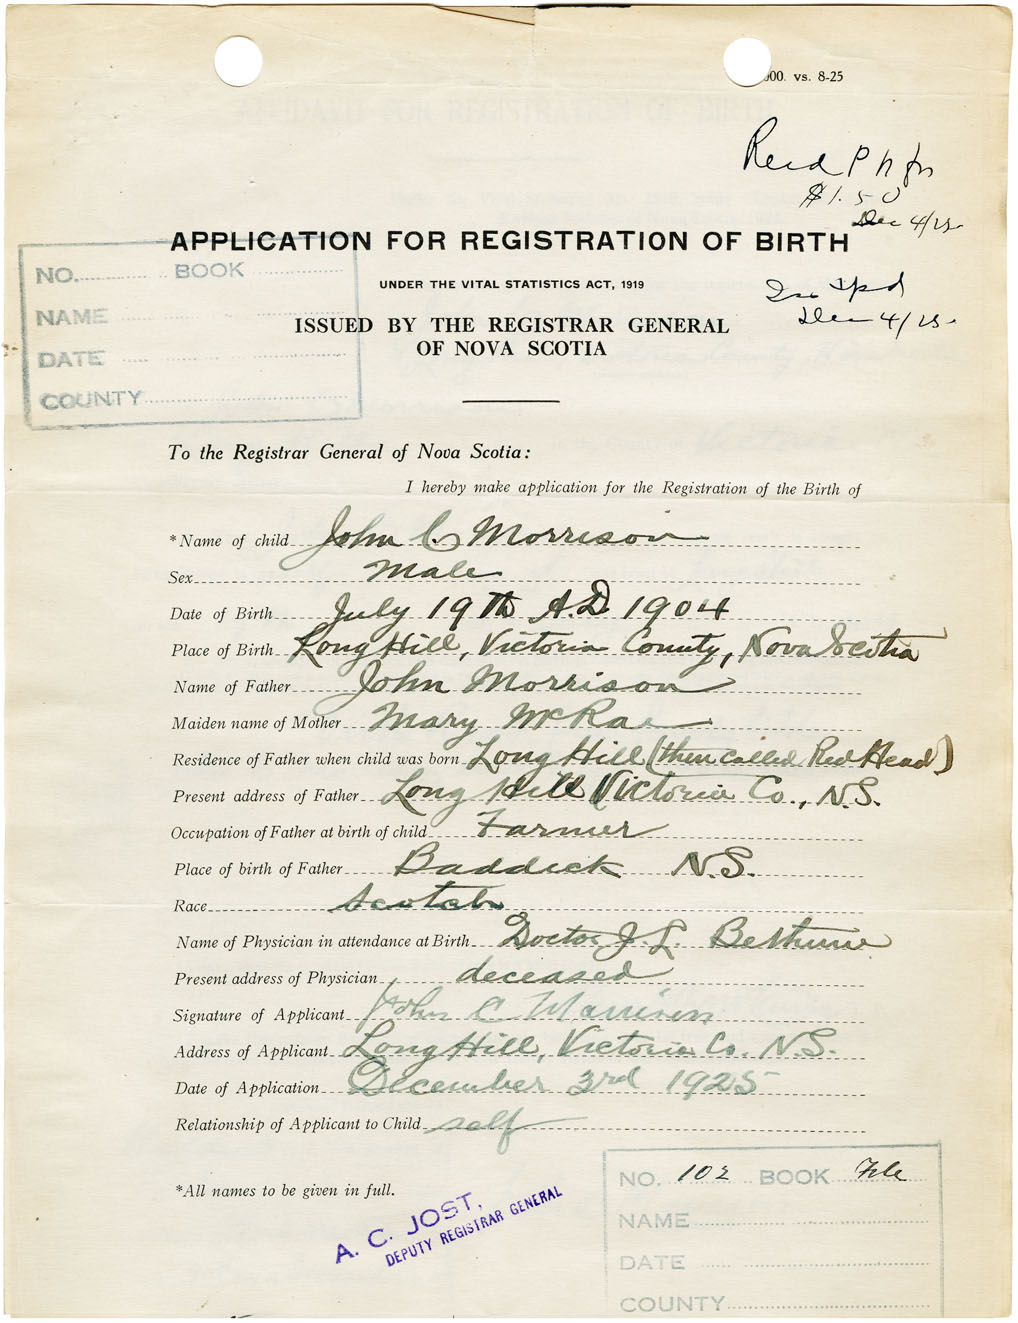 00. vs. 8-25
$1.50
Dec 4/25
APPLICATION FOR REGISTRATION OF BIRTH
NO. BOOK
NAME
DATE
COUNTY
UNDER THE VITAL STATISTICS ACT, 1919
Dec 4/25
ISSUED BY THE REGISTRAR GENERAL
OF NOVA SCOTIA
To the Registrar General of Nova Scotia:
I hereby make application for the Registration of the Birth of
*Name of child John C. Morrison
Sex Male
Date of Birth July 19th A.D. 1904
Place of Birth Long Hill, Victoria County, Nova Scotia
Name of Father John Morrison
Maiden name of Mother Mary McRae
Residence of Father when child was born Long Hill (then called Red Head)
Present address of Father Long Hill Victoria Co., N.S.
Occupation of Father at birth of child Farmer
Place of birth of Father Baddeck N.S.
Race Scotch
Name of Physician in attendance at Birth Doctor J. L. Bethune
Present address of Physician deceased
Signature of Applicant John C Morrison
Address of Applicant Long Hill, Victoria Co. N.S.
Date of Application December 3rd 1925
Relationship of Applicant to Child self
*All names to be given in full.
A. C. JOST,
DEPUTY REGISTRAR GENERAL
NO. 102 BOOK File
NAME
DATE
COUNTY